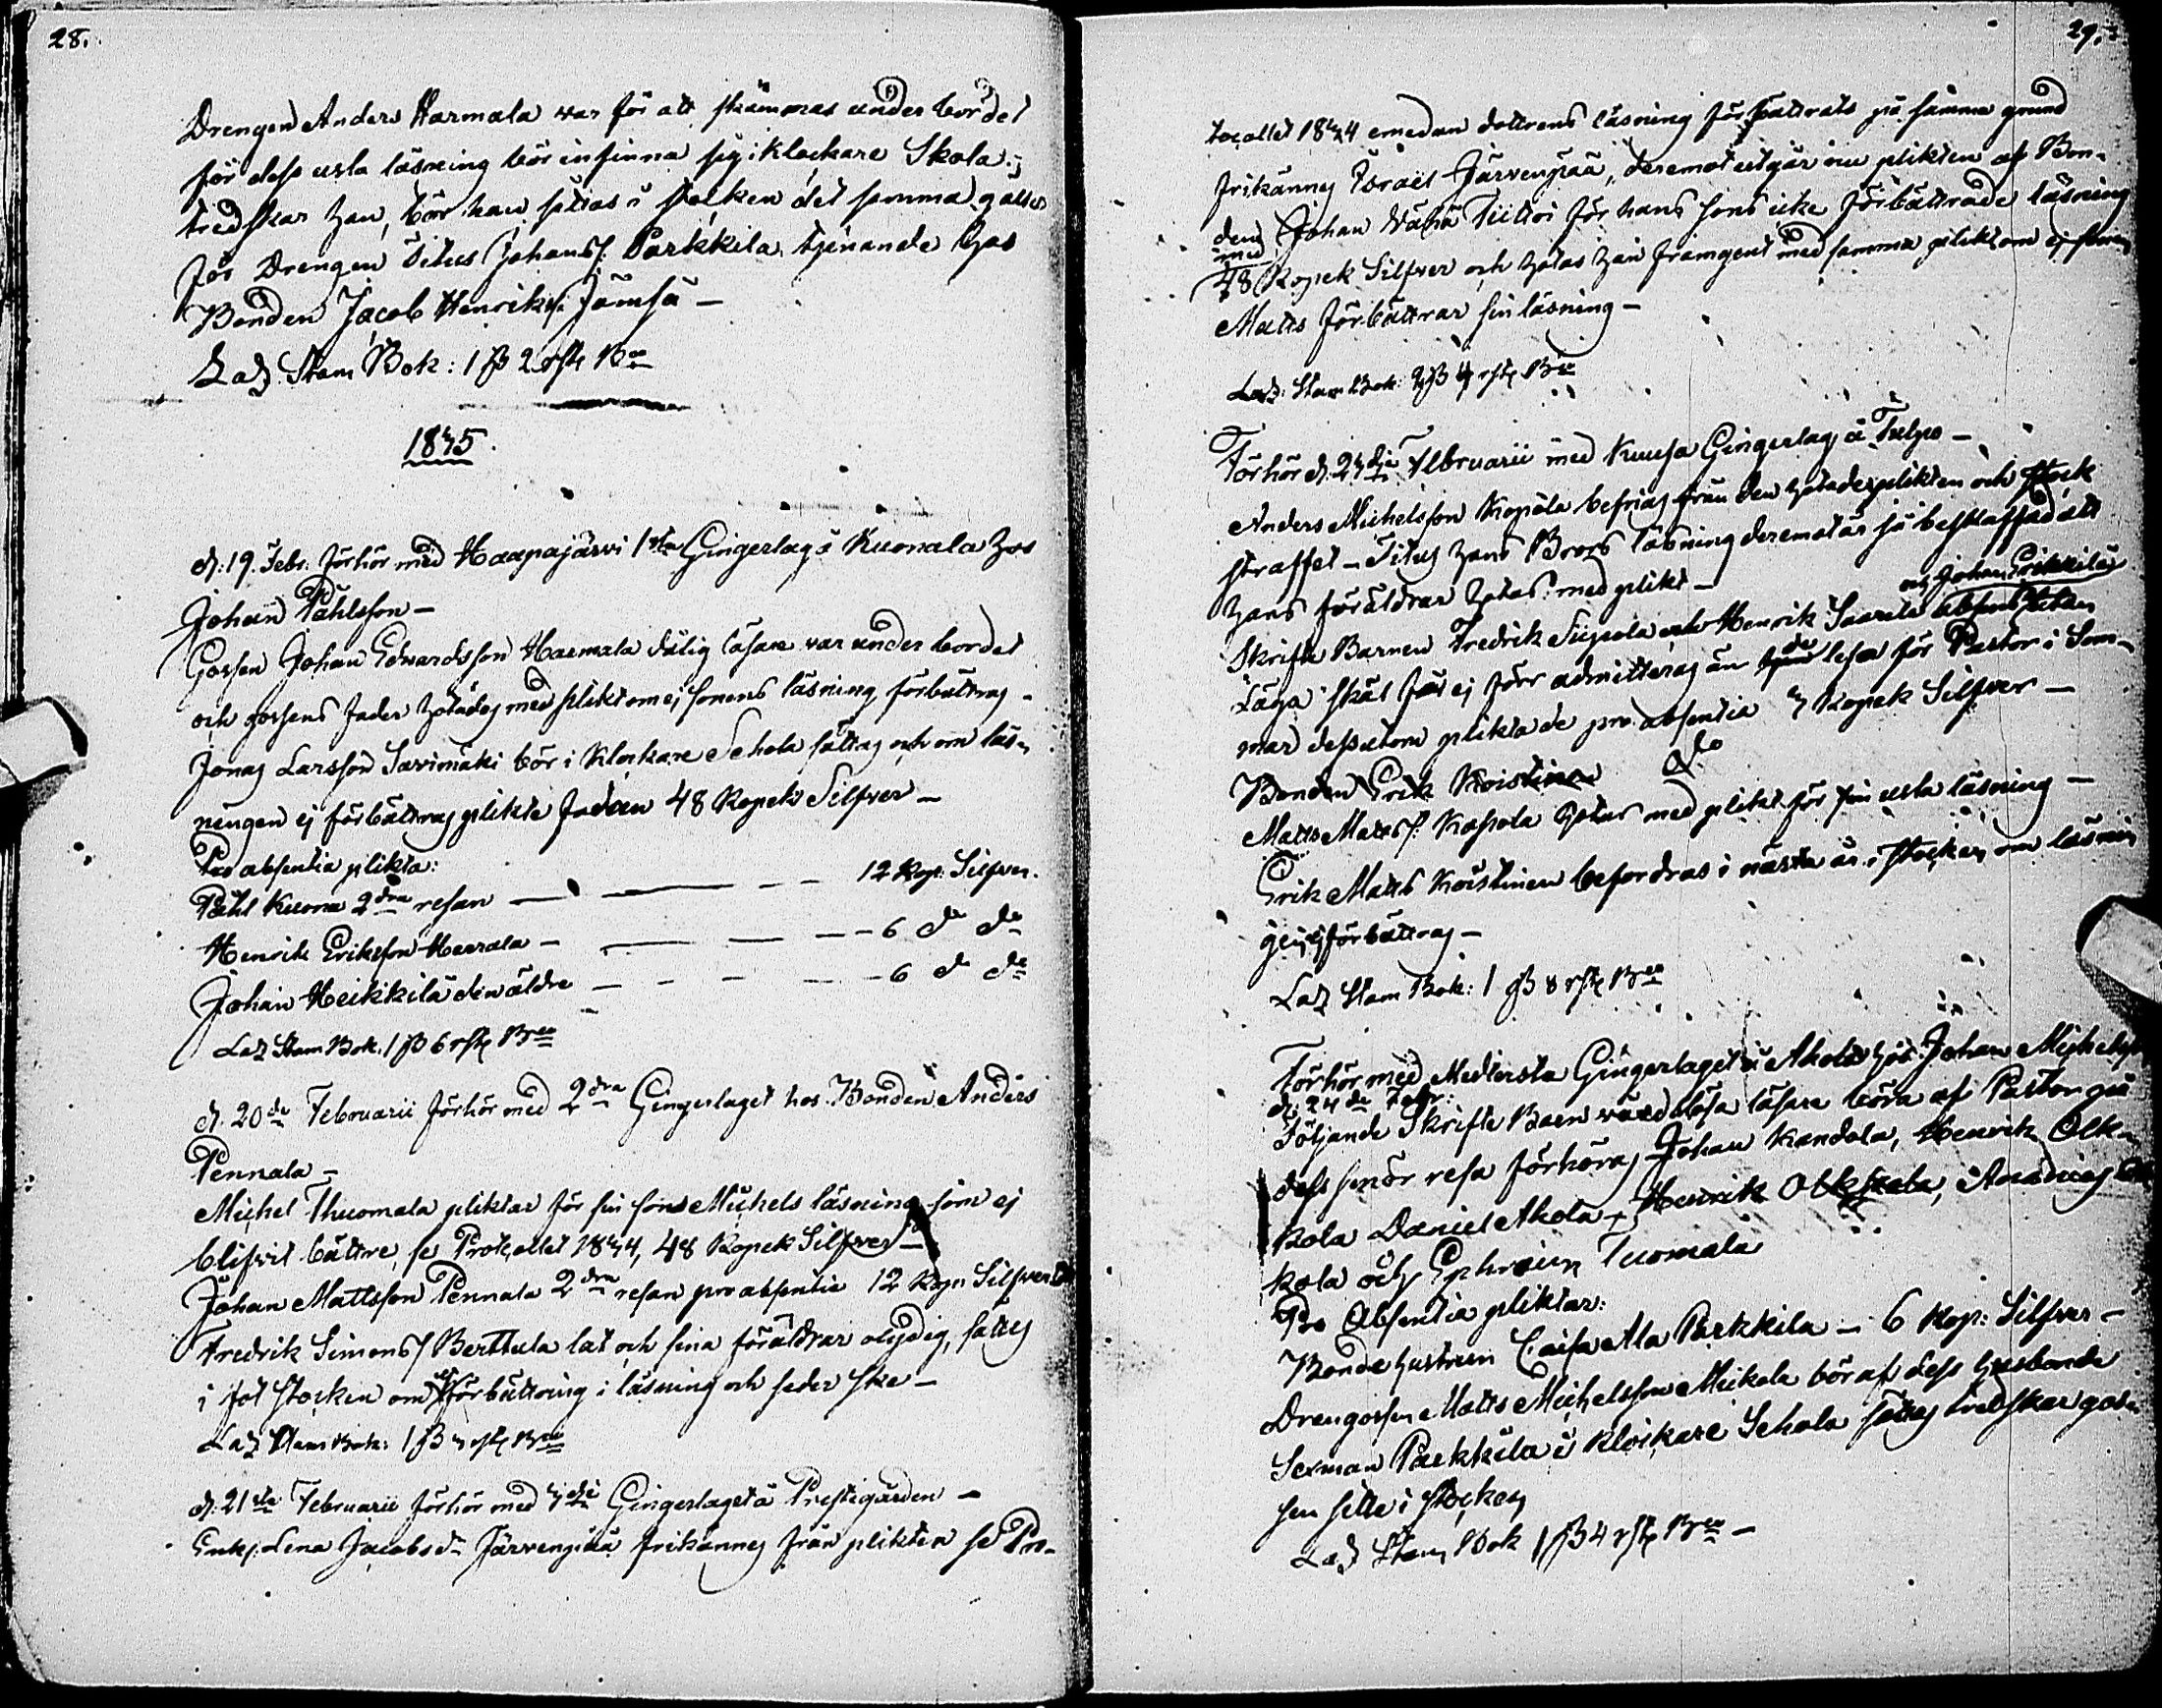 28.
Drengen Anders Harmala var för att skämmas under bordet
för dess usla läsning bör infinna sig i klockare Skola;
tredskar han, bör han sättas i stocken det samma gäller
för Drengen Titus Johanss. Parkkila tjenande hos
Bonden Jacob Henrikss. Jämsä —
Lad. Stam Bok: 1 ß 2 rst Bco
1845.
d. 19. Febr. förhör med Haapajärvi 1sta Gingerlag å Kuonala hos
Johan Påhlsson —
Gossen Johan Edvardsson Harmala dålig läsare var under bordet
och gossens fader hotades med plikt om ej sonens läsning förbättras —
Jonas Larsson Savimäki bör i Klockare Schola sättas och om läs-
ningen ej förbättras plikte fadren 48 Kopek Silfver —
Pro absentia plikta:
Påhl Kuona 2dra resan — — — 12 Kop. Silfver.
Henrik Eriksson Haarala — — — 6 do do
Johan Heikkilä den äldre — — — 6 do do
Lad Stam Bok. 1 ß 6 rst Bco
d. 20de Februarii förhör med 2dra Gingerlaget hos Bonden Anders
Pennala —
Michel Thuomala pliktar för sin sons Michels läsning som ej
blifvit bättre, se Protocollet 1844, 48 Kopek Silfver —
Johan Mattsson Pennala 2dra resan pro absentia 12 Kop. Silfver
Fredrik Simonss. Berttula lat och sina föräldrar olydig, sättes
i fot stocken om ej förbättring i läsning och seder ske —
Lad Stam Bok: 1 ß rst Bco
d. 21sta Februarii förhör med Gingerlaget å Prestegården —
Enk. Lena Jacobsdr Järvenpää frikännes från plikten se Pro-
29.
tocollet 1844 emedan dottrens läsning förbättrats på samma grund
frikännes Israel Järvenpää, deremot utgår nu plikten af Bon-
den Johan Wähä Tiitto för hans sons icke förbättrade läsning
med
48 Kopek Silfver och hotas han framgent med samma plikt om ej sonen
Matts förbättrar sin läsning —
Lad: Stam Bok: ß 4 rst Bco
Förhör d. Februarii med Kuusa Gingerlag å Tulpo —
Anders Michelsson Kopola befrias från den hotade plikten och stock
straffet — Titus hans Brors läsning deremot är så beskaffad att
hans föräldrar hotas med plikt —
och Johan Erikkilä
Skrifte Barnen Fredrik Siipola och Henrik Saarela absent utan
Laga skäl få ej förr admitteras än de lesa för Pastor i Som-
mar dessutom plikta de pro absentia Kopek Silfver —
Bonden Erik Koistinen do
Matts Matss. Kassola hotas med plikt för sin usla läsning —
Erik Matts Koistinen befordras i nästa år i stocken om läsnin
gen ej förbättras —
Lad Stam Bok: 1 ß 8 rst Bco
Förhör med Medlersta Gingerlaget å Akola hos Johan Michelss.
d. 24de Febr:
Följande Skrifte Barn vårdslösa läsare böra af Pastor på
dess senör resa förhöras Johan Kandola, Henrik Olk-
kola Daniel Akola, Henrik Olkkola, Ananias
kola och Ephraim Tuomala
Pro Absentia pliktar:
Bonde hustrun Caisa Ala Parkkila — 6 Kop: Silfver —
Drengossen Matts Michelsson Meikola bör af dess husbonde
Sexman Parkkila i klockare Schola sättas tredskar gos-
sen sitte i stocken
Lad Stam Bok 1 ß 4 rst Bco —